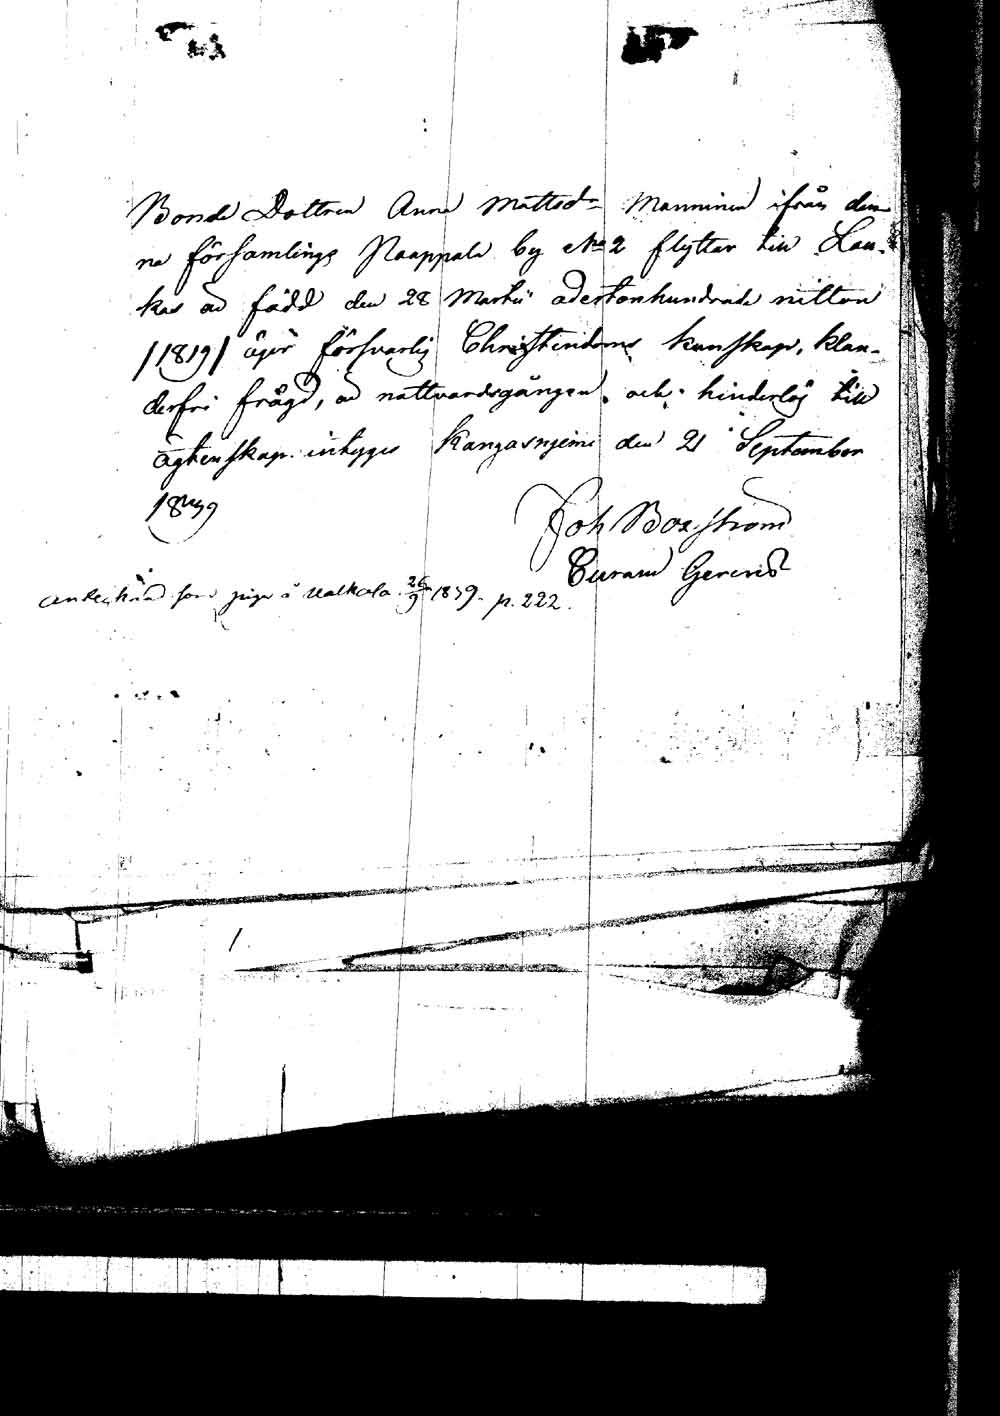 Bonde Dottren Anna Mattsd:r Manninen ifrån den-
na församlings Naappala by No 2 flyttar till Lau-
kas är född den 28 Martii adertonhundrade nitton
/1819/ äger försvarlig Christendoms kunskap, klan-
derfri frägd, är nattvardsgången, och hinderlös till
ägtenskap intygges Kangasnjemi den 21 September
1839
Joh Boxström
Curam Gerens
Antecknad som piga å Valkola 26/9 1839. p. 222.